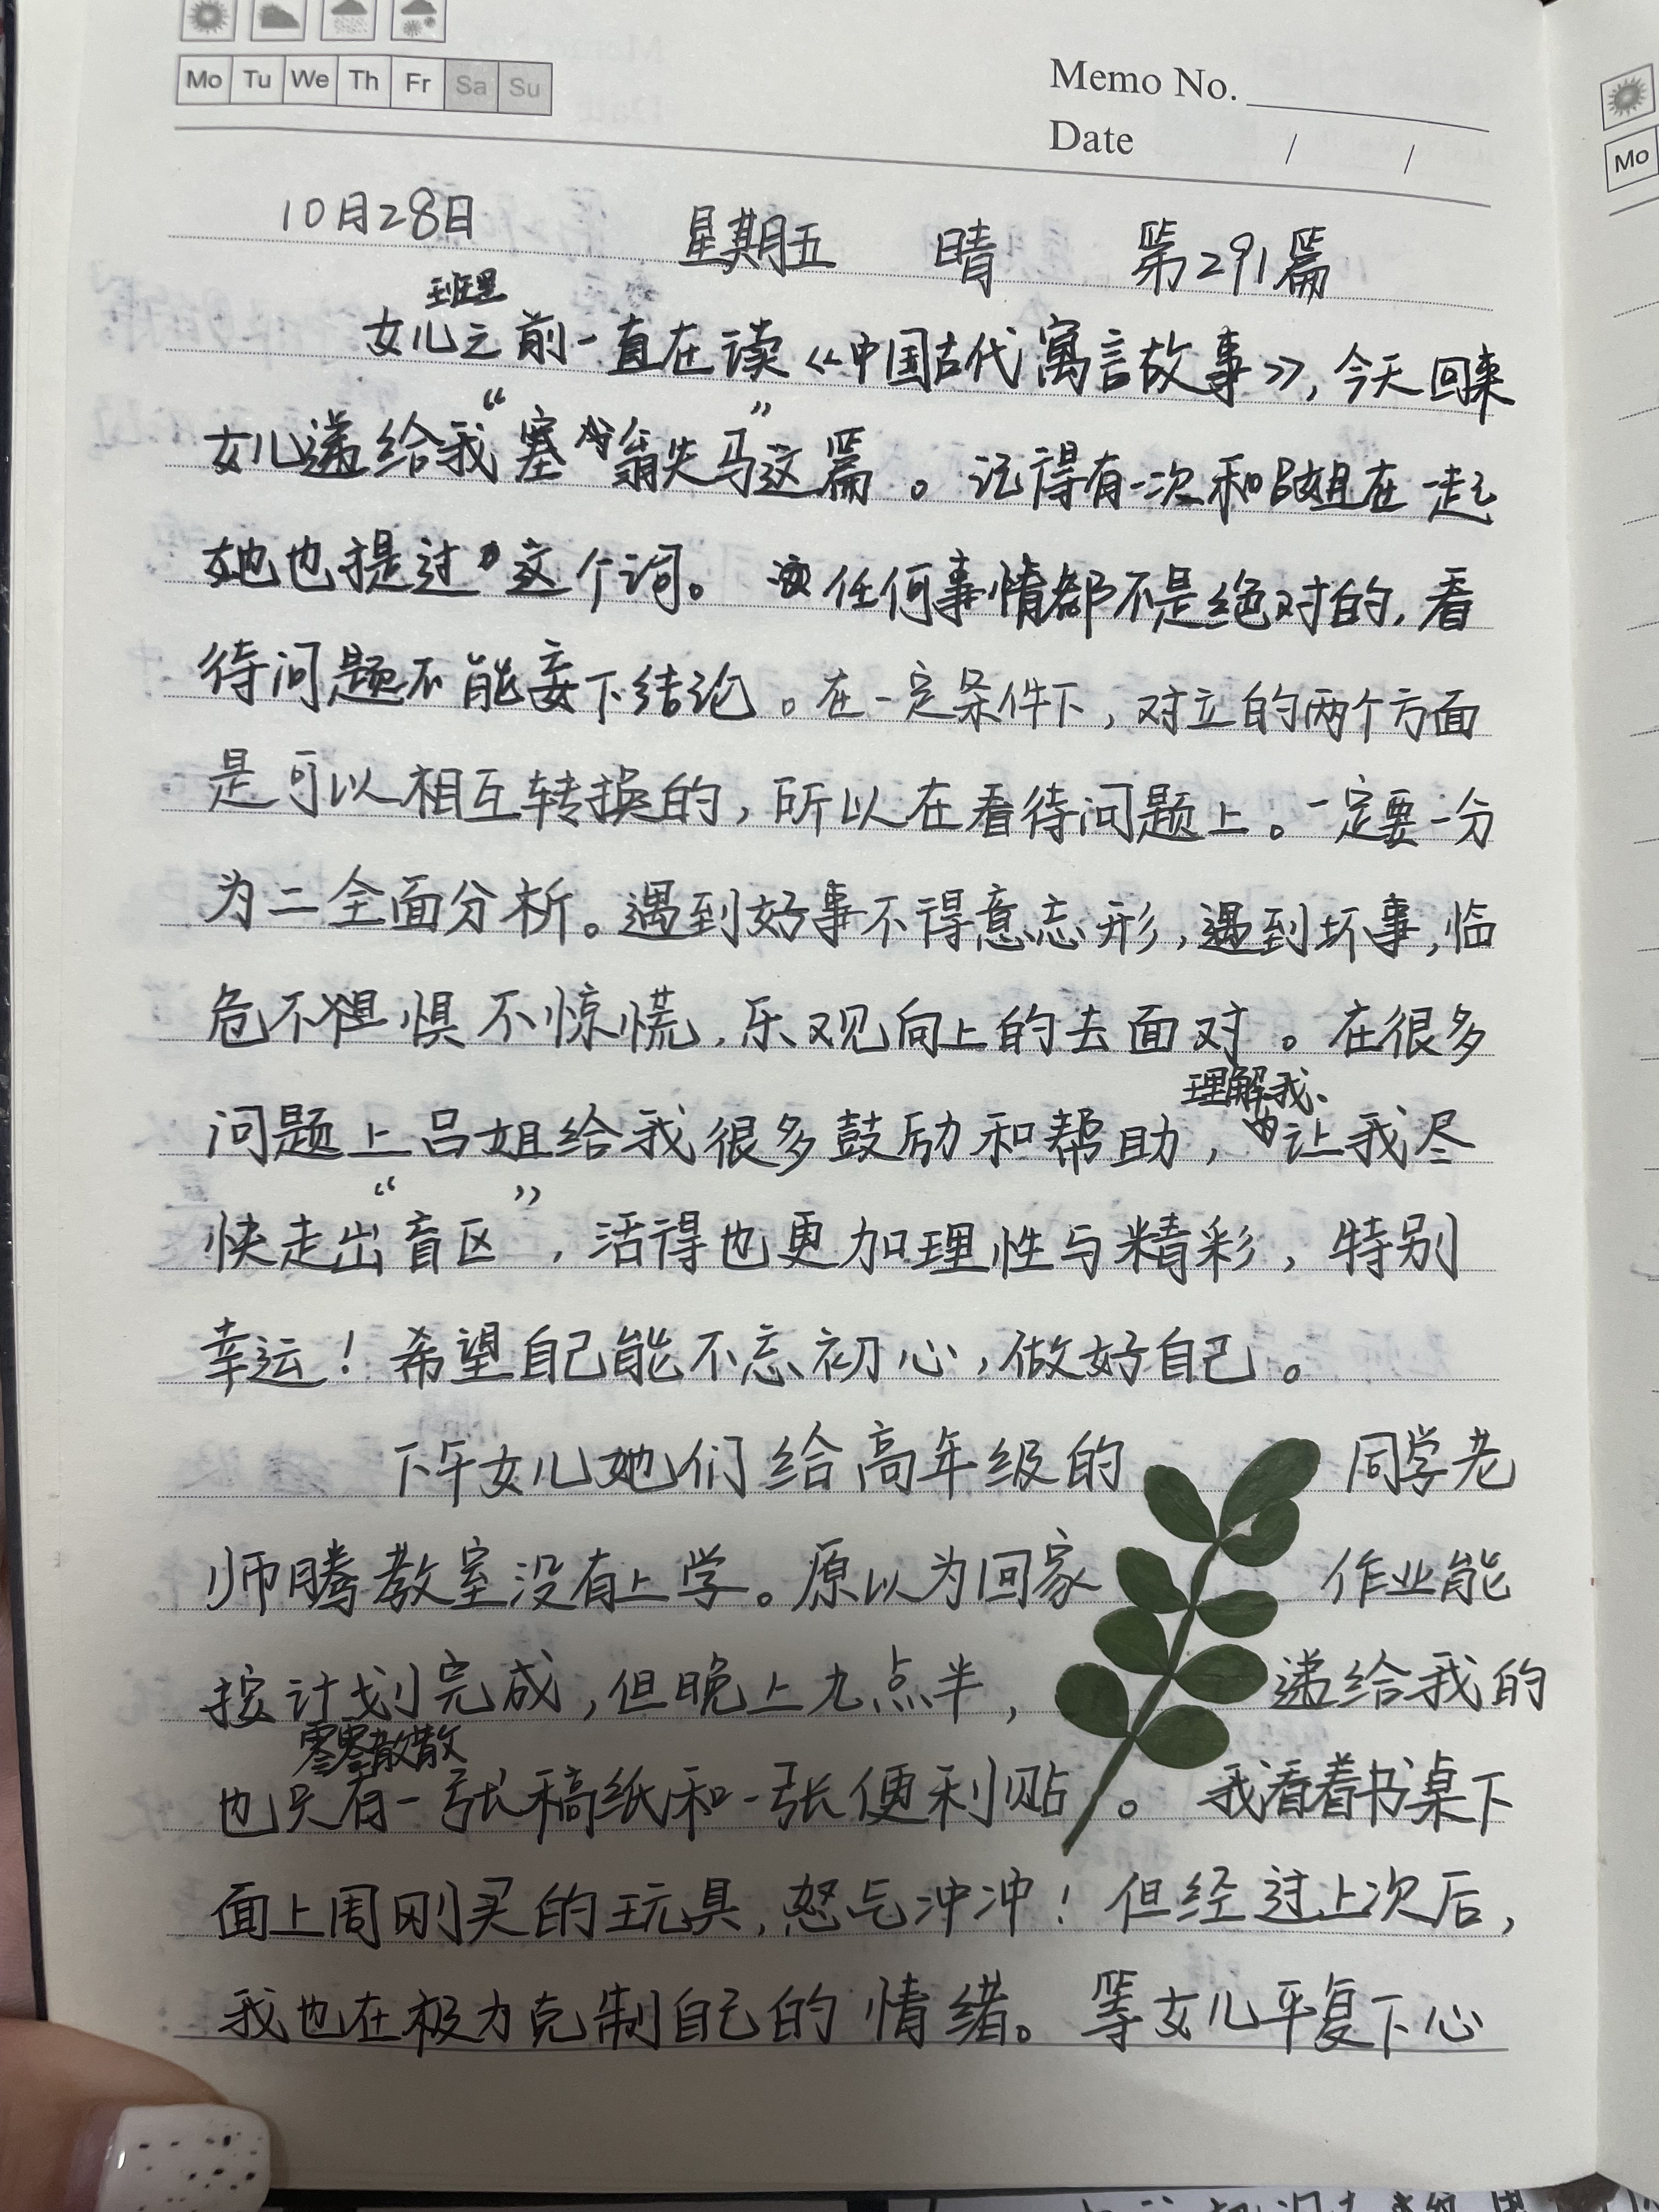 Mo Tu We Th Fr Sa Su
Memo No.
Date / /
Mo
10月28日 星期五 晴 第291篇
班里
女儿之前一直在读《中国古代寓言故事》,今天回来
女儿递给我“塞翁失马”这篇。记得有一次和吕姐在一起
她也提过这个词。任何事情都不是绝对的,看
待问题不能妄下结论。在一定条件下,对立的两个方面
是可以相互转换的,所以在看待问题上。一定要一分
为二全面分析。遇到好事不得意忘形,遇到坏事,临
危不惧不惊慌,乐观向上的去面对。在很多
理解我、
问题上吕姐给我很多鼓励和帮助,让我尽
快走出“盲区”,活得也更加理性与精彩,特别
幸运!希望自己能不忘初心,做好自己。
下午女儿她们给高年级的同学老
师腾教室没有上学。原以为回家作业能
按计划完成,但晚上九点半,递给我的
零零散散
也只有一张稿纸和一张便利贴。我看着书桌下
面上周刚买的玩具,怒气冲冲!但经过上次后,
我也在极力克制自己的情绪。等女儿平复下心